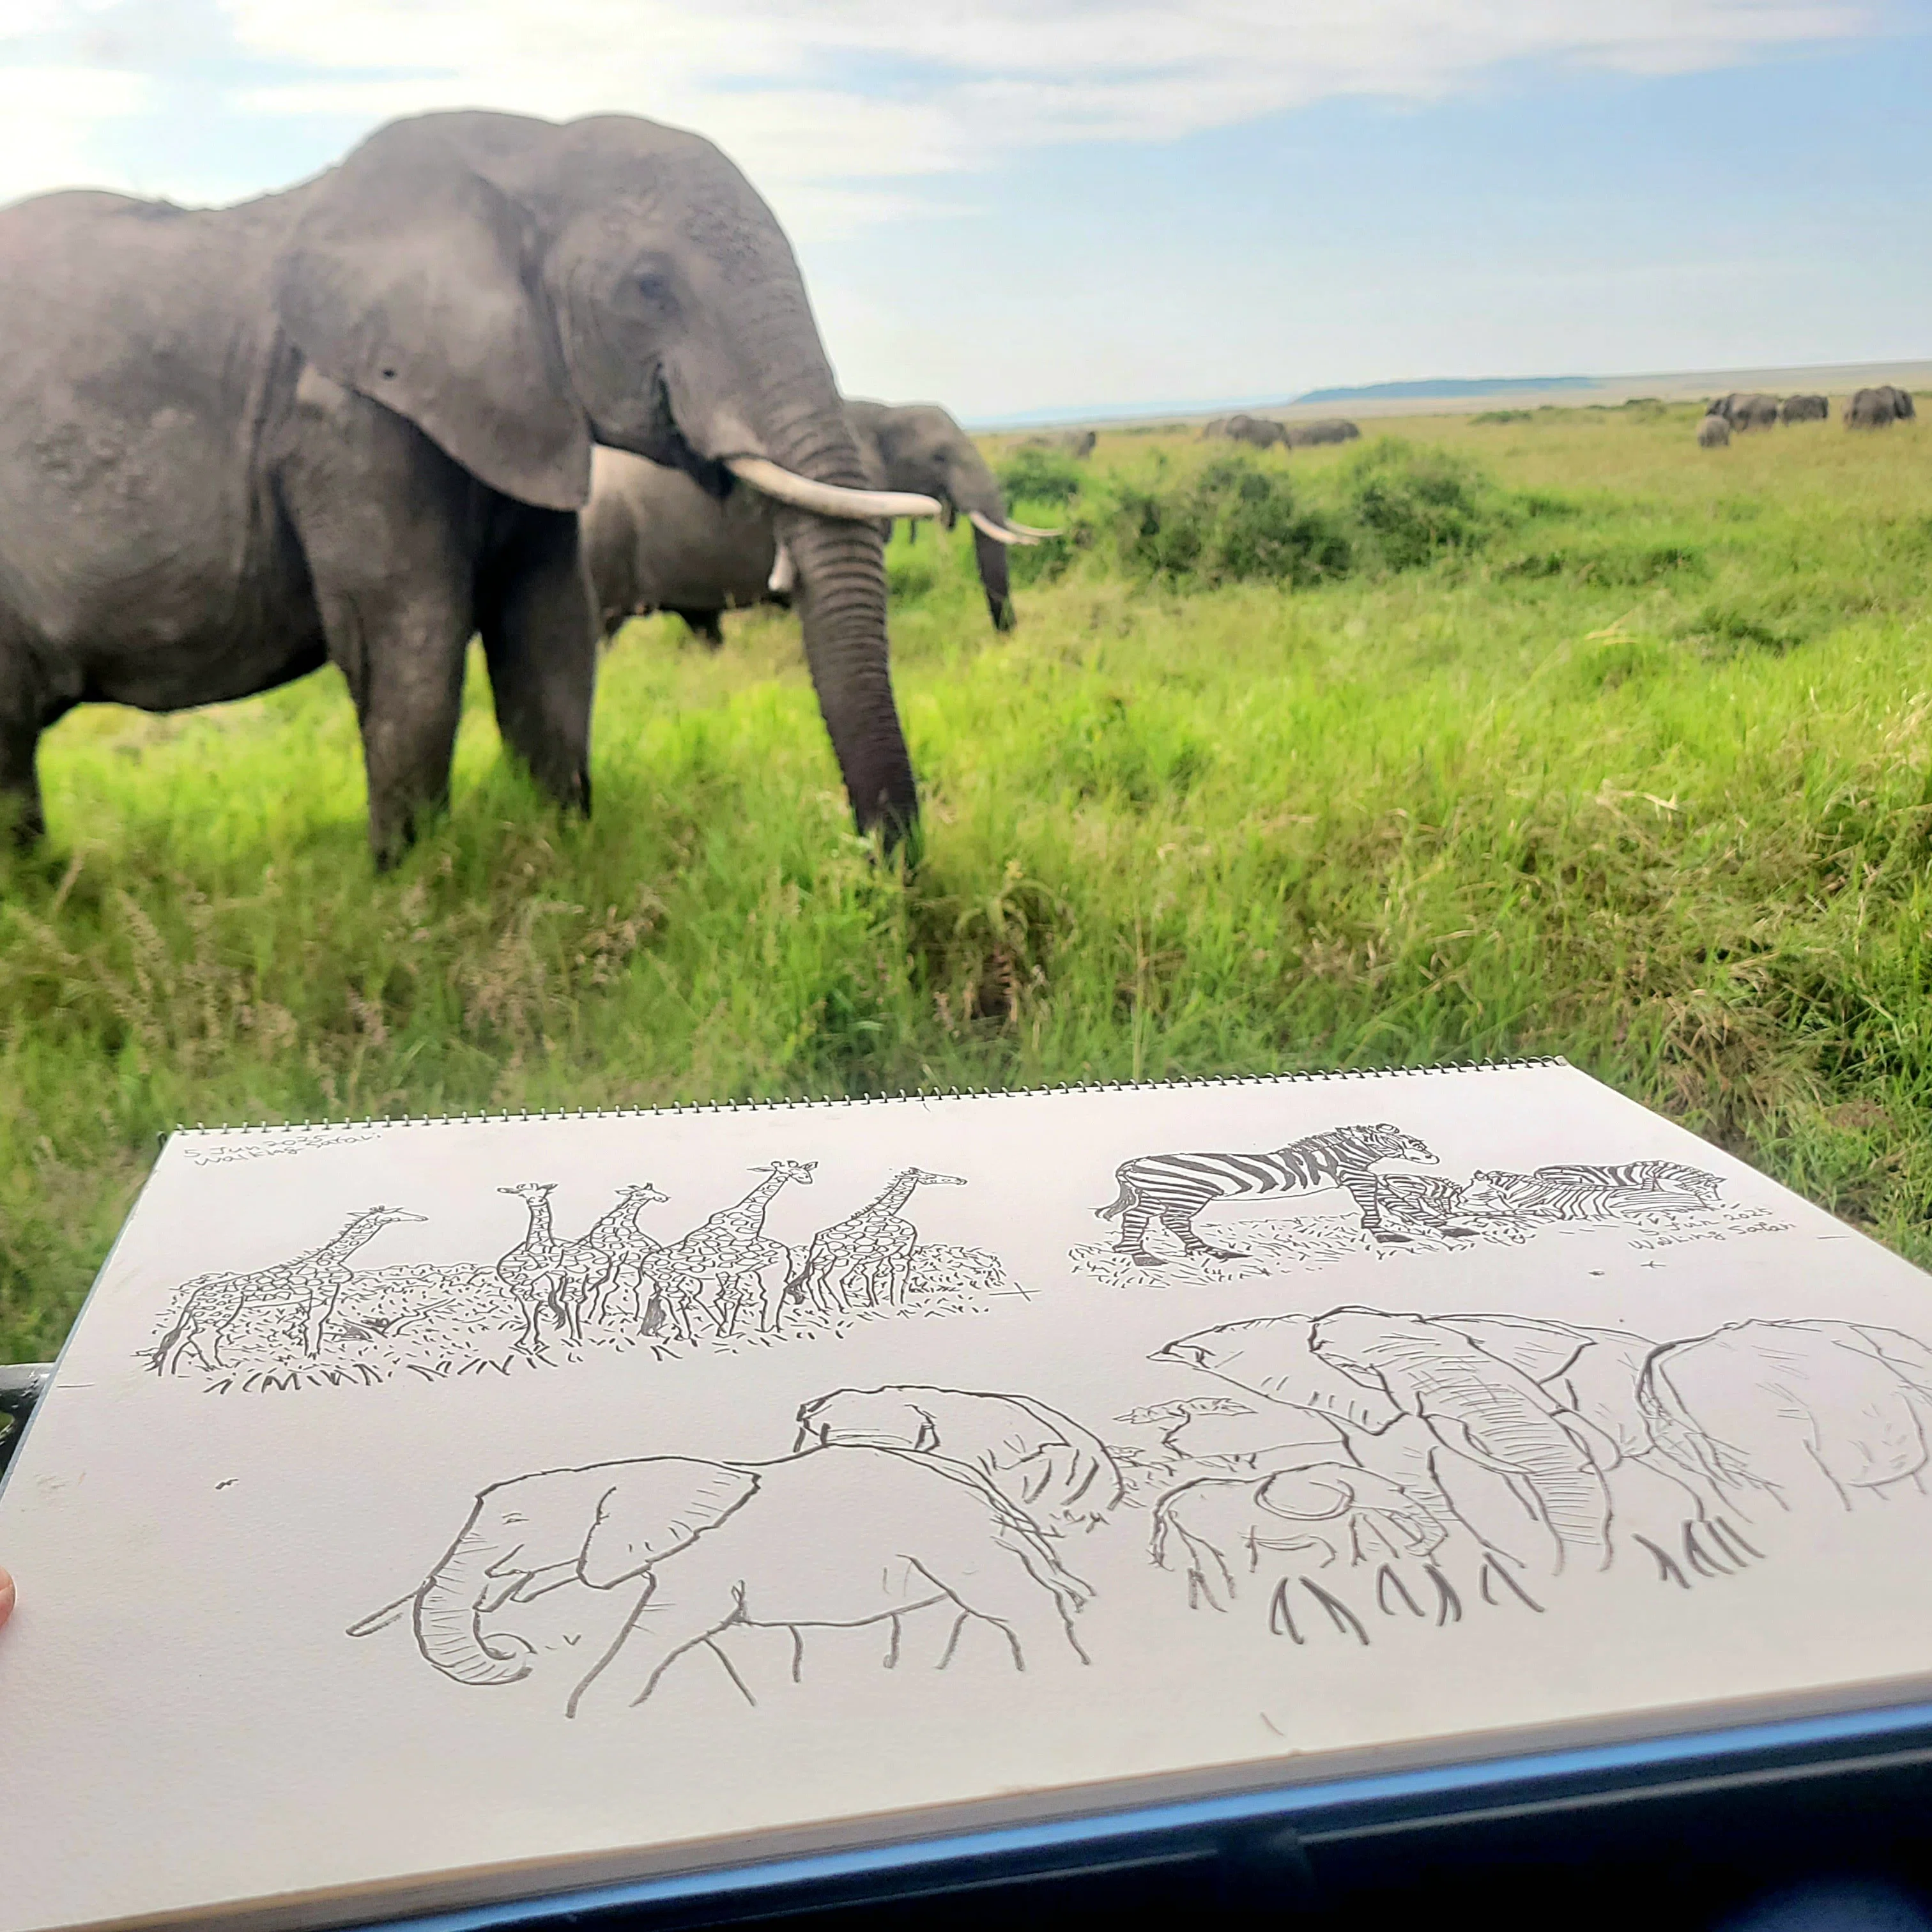 5 Jun 2025
Walking Safari
5 Jun 2025
Walking Safari